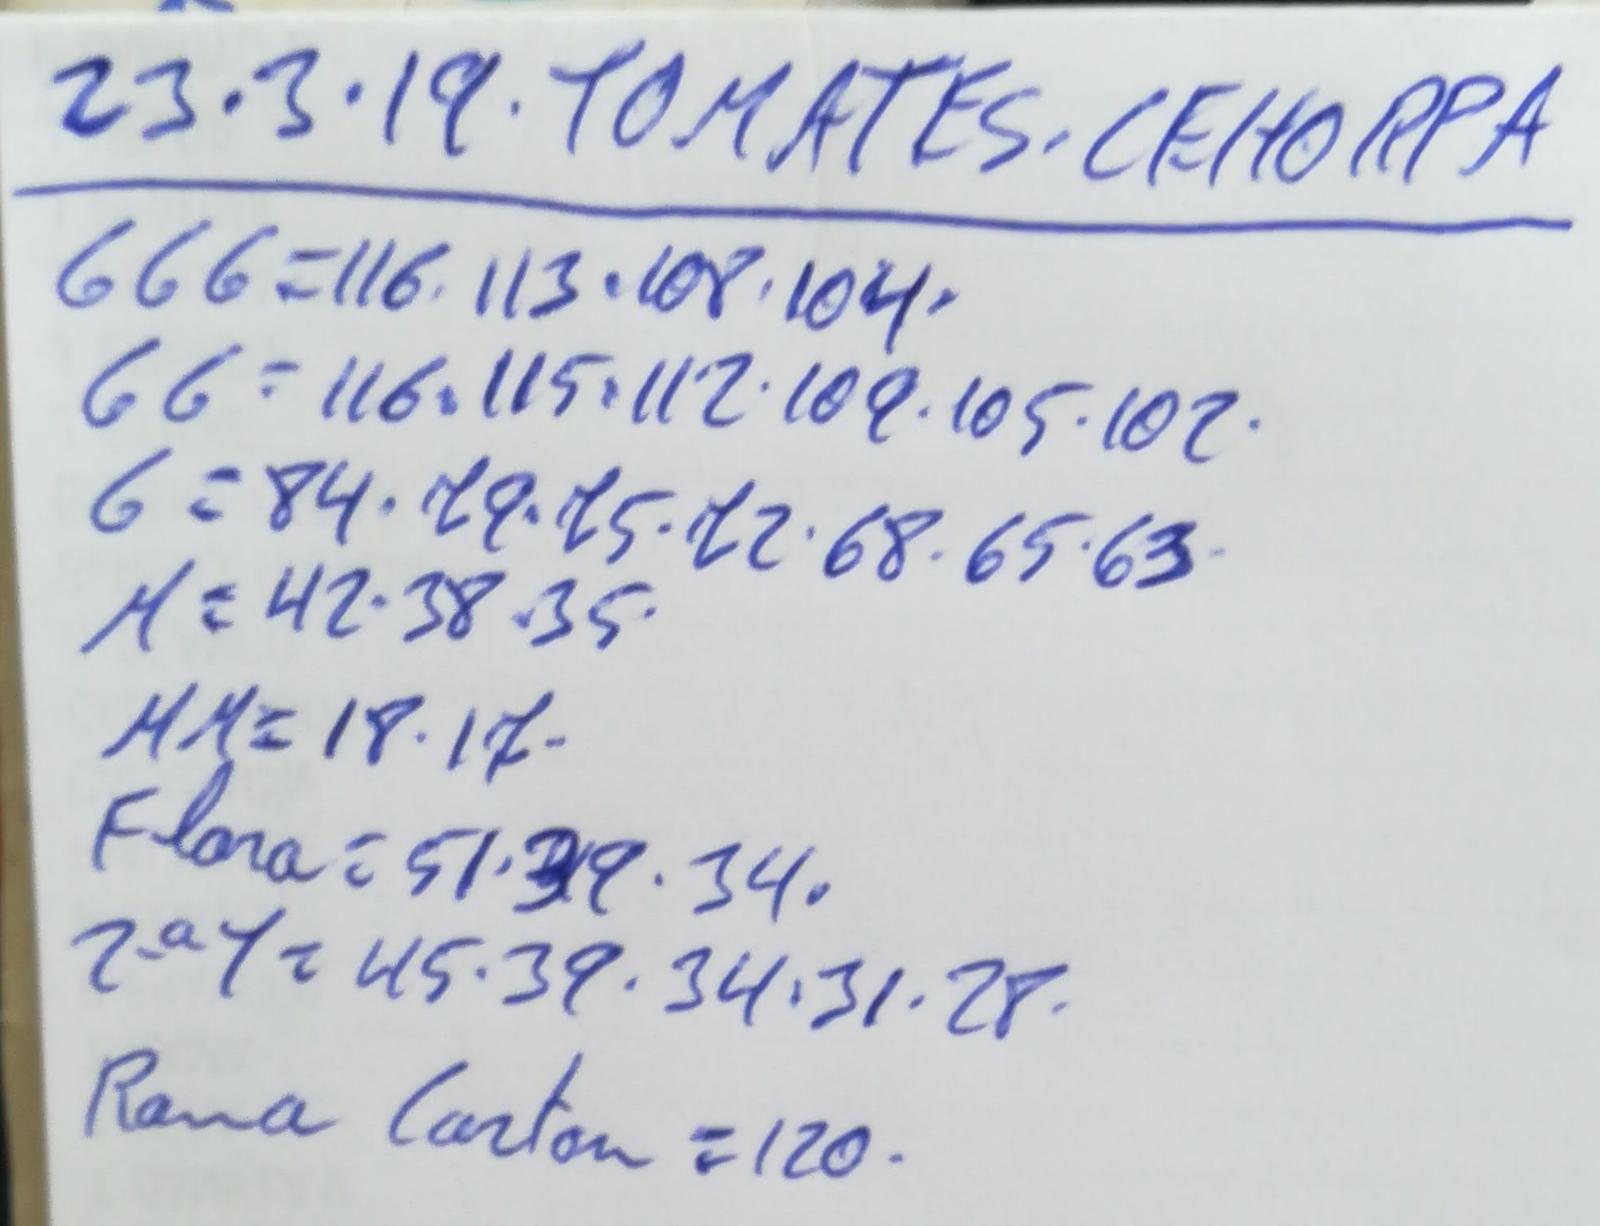 23.3.19. TOMATES. CEHORPA
GGG = 116. 113. 108. 104.
GG = 116. 115. 112. 109. 105. 102.
G = 84. 79. 75. 72. 68. 65. 63.
M = 42. 38. 35.
MM = 18. 17.
Flora = 51. 39. 34.
2ªY = 45. 39. 34. 31. 28.
Rama Carton = 120.